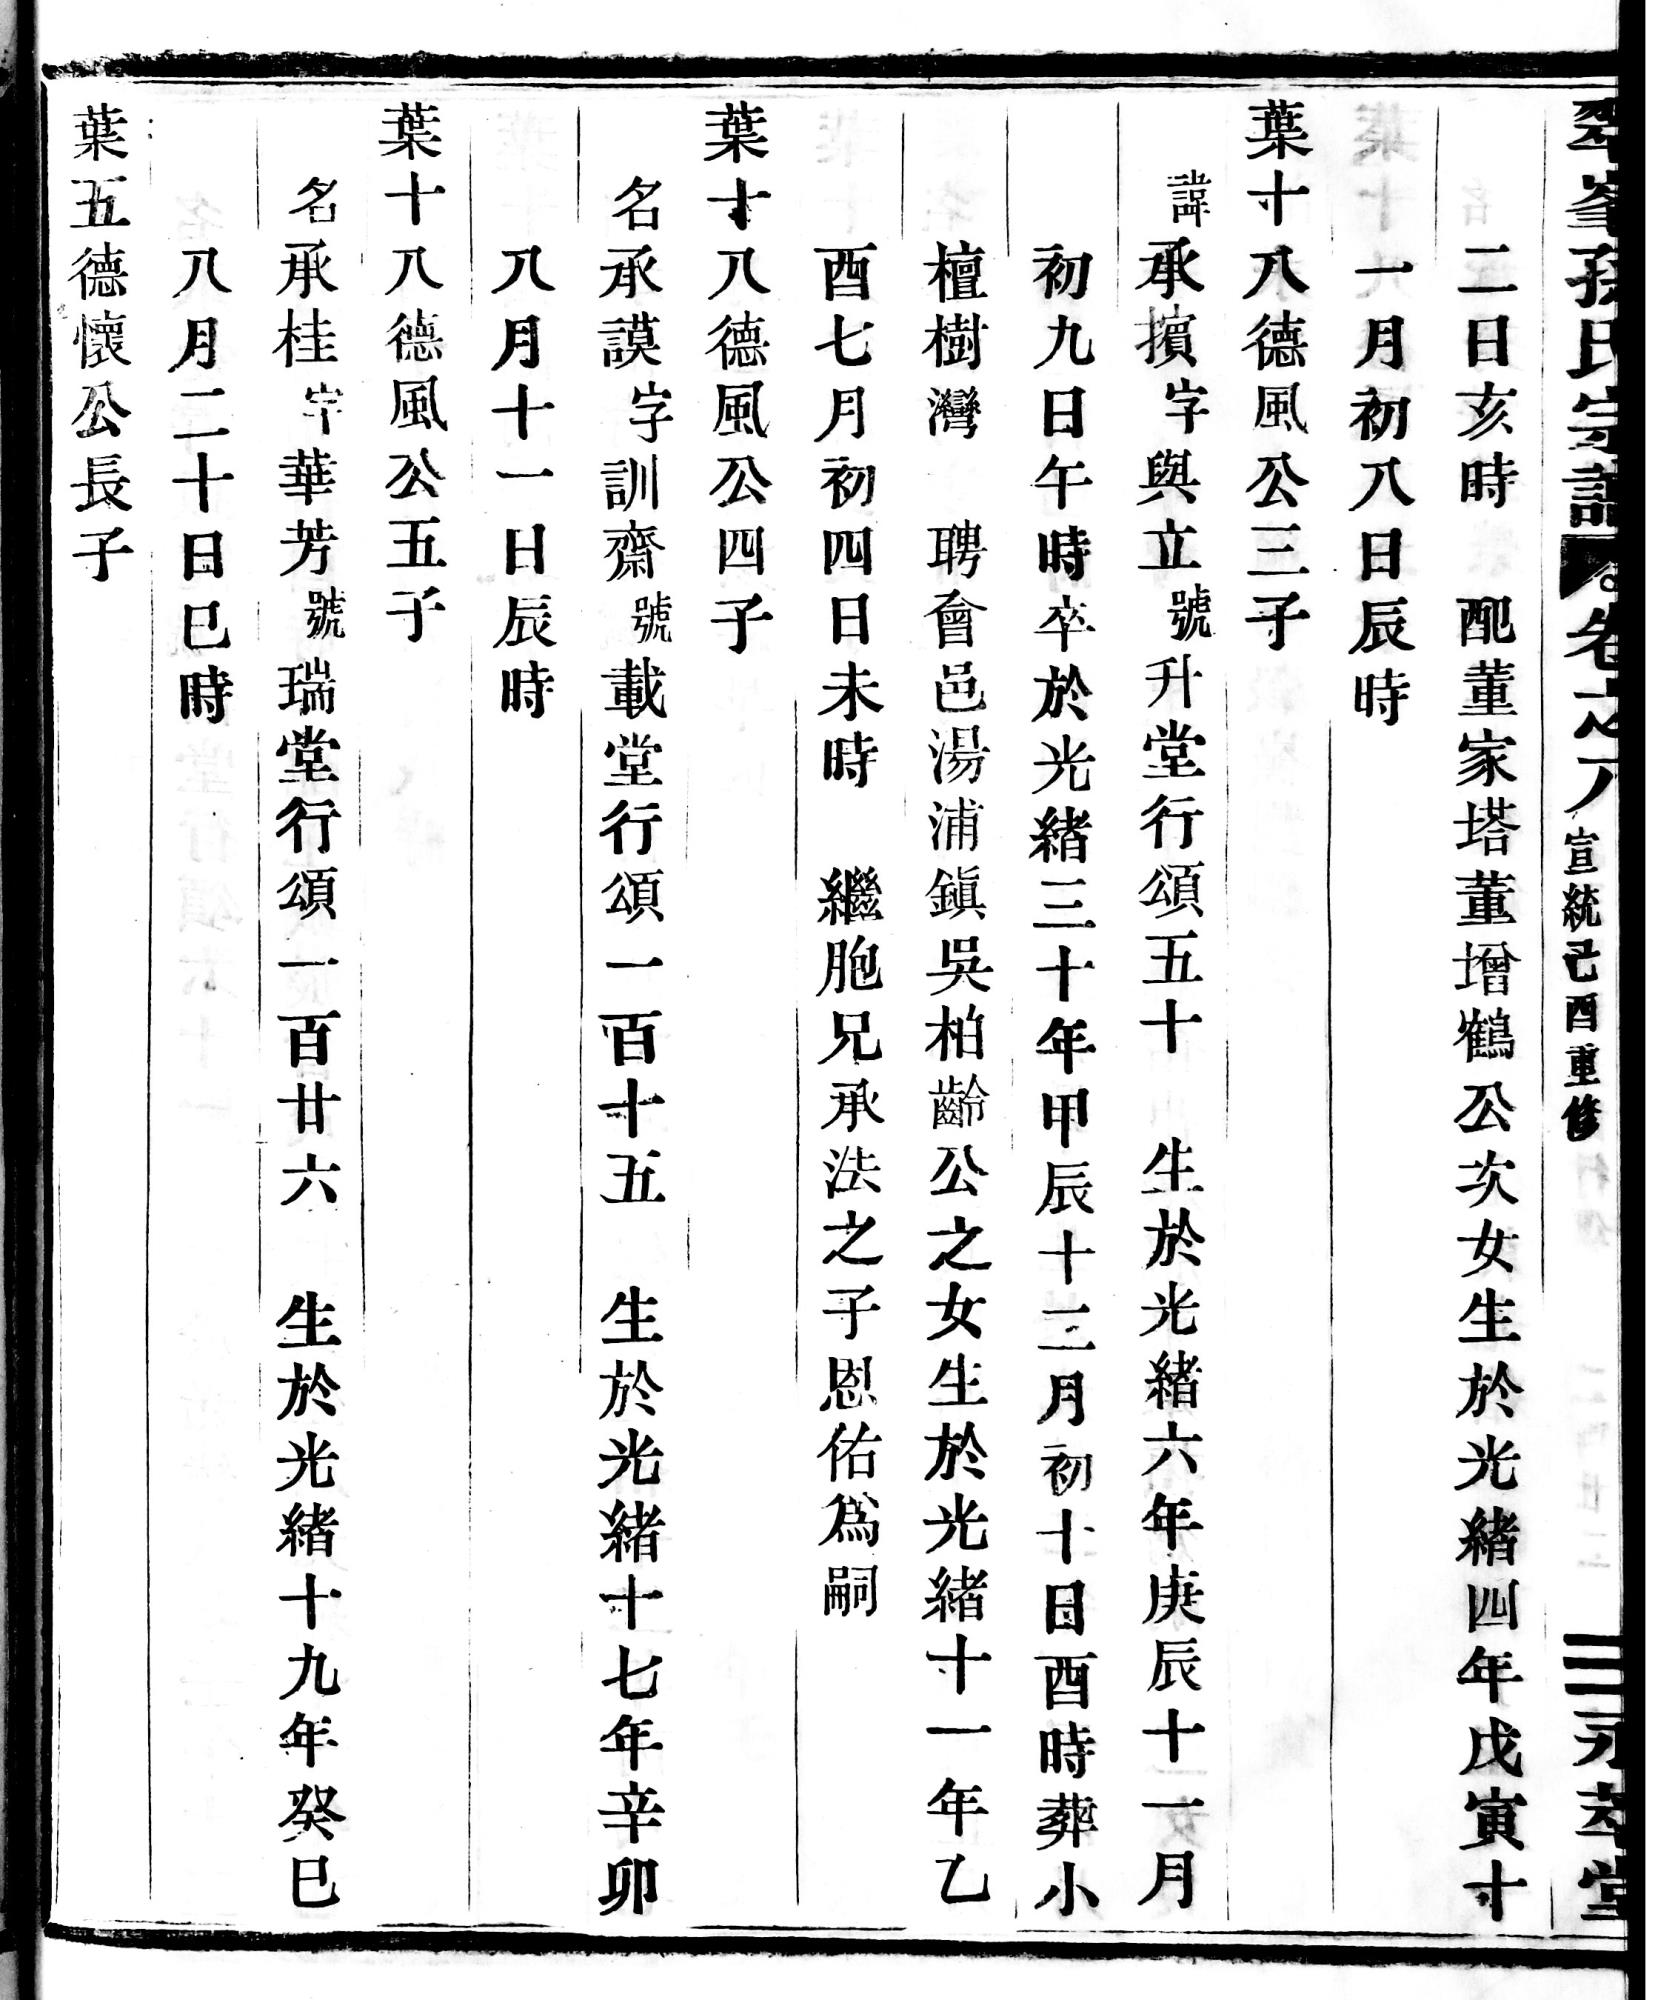 翠峯孫氏宗譜 卷之八 宣統己酉重修 二 永萃堂
二日亥時 配董家塔董增鶴公次女生於光緒四年戊寅十
一月初八日辰時
葉十八德風公三子
諱承擯字與立號升堂行頌五十 生於光緒六年庚辰十一月
初九日午時卒於光緒三十年甲辰十二月初十日酉時葬小
檀樹灣 聘會邑湯浦鎮吳柏齡公之女生於光緒十一年乙
酉七月初四日未時 繼胞兄承法之子恩佑為嗣
葉十八德風公四子
名承謨字訓齋號載堂行頌一百十五 生於光緒十七年辛卯
八月十一日辰時
葉十八德風公五子
名承桂字華芳號瑞堂行頌一百廿六 生於光緒十九年癸巳
八月二十日巳時
葉五德懷公長子